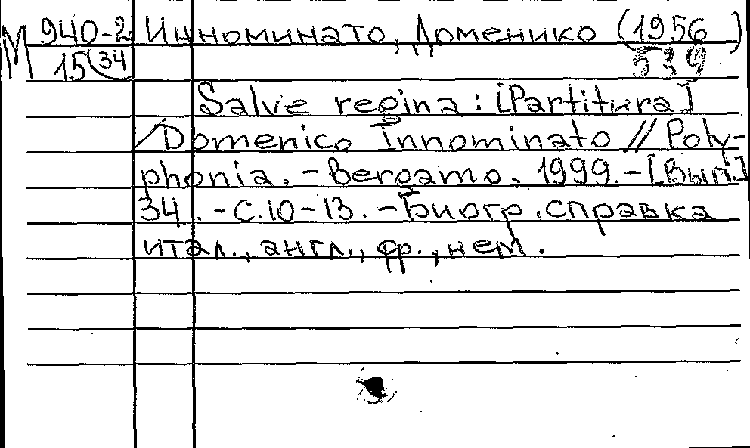 М 940-2 Инноминато, Доменико (1956 )
15(34 539
Salve regina : [Partitura]
/Domenico Innominato // Poly-
phonia. - Bergamo, 1999. - [Вып.]
34. - С.10-13. - Биогр. справка
итал., англ., фр., нем.